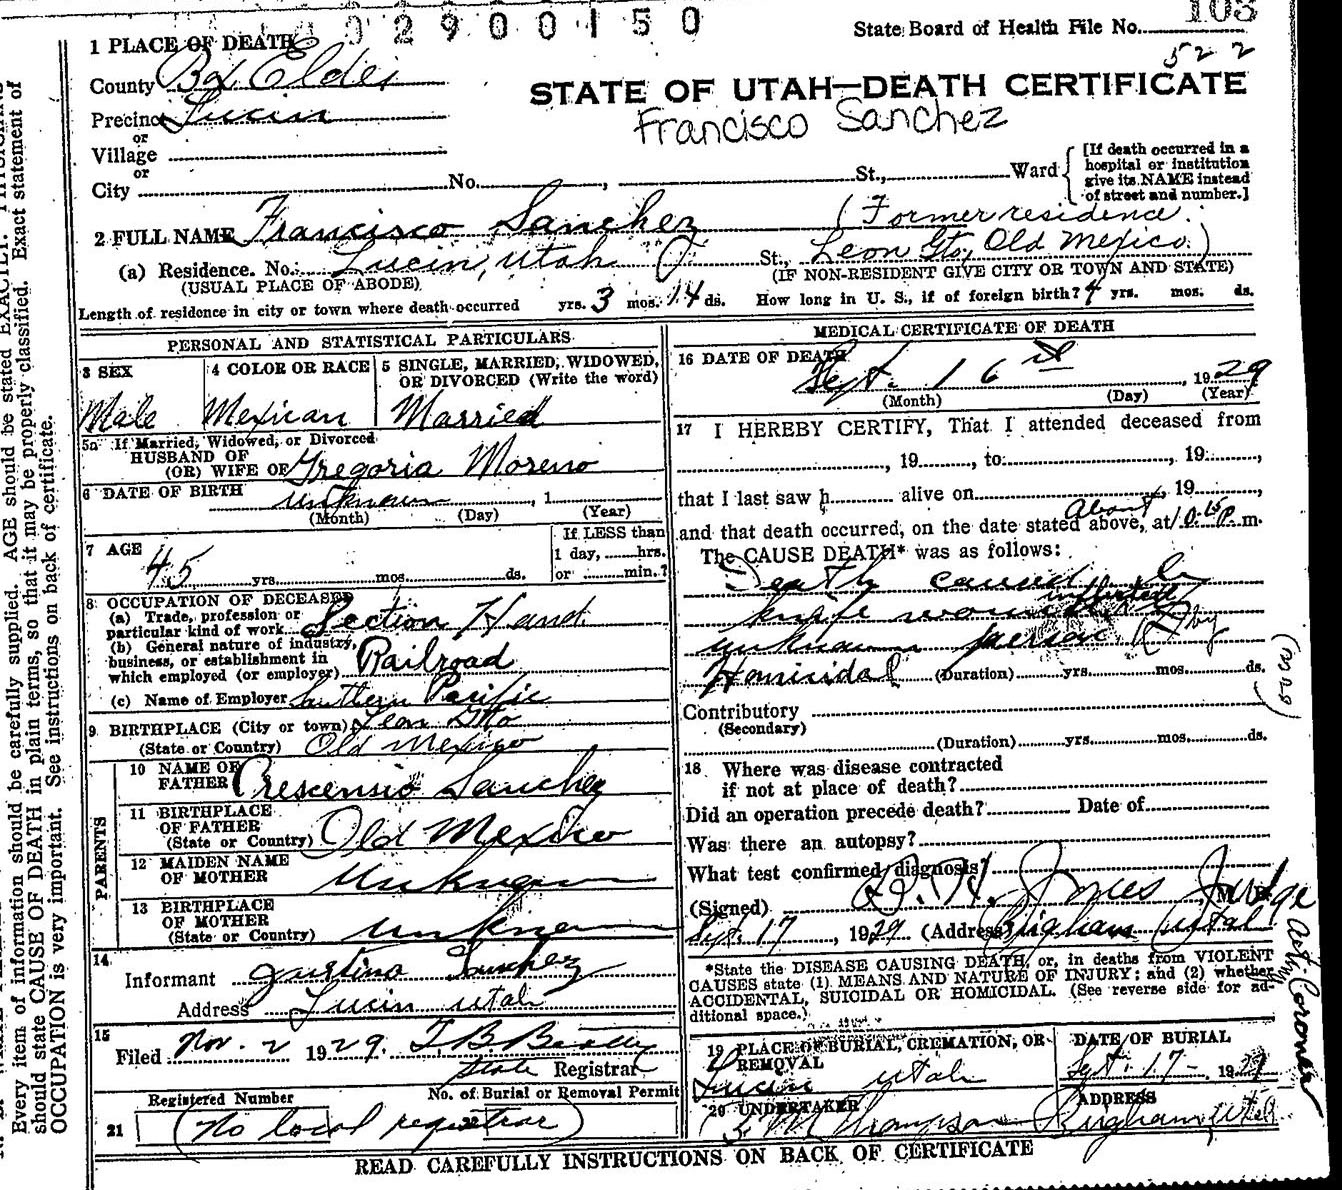 02900150
103
State Board of Health File No.
522
1 PLACE OF DEATH
County Box Elder
STATE OF UTAH—DEATH CERTIFICATE
Precinct Lucin
Francisco Sanchez
or
Village
or
City No. , St., Ward
[If death occurred in a
hospital or institution
give its NAME instead
of street and number.]
2 FULL NAME Francisco Sanchez
(Former residence
(a) Residence. No. Lucin, Utah St., Leon Gto, Old Mexico.)
(USUAL PLACE OF ABODE) (IF NON-RESIDENT GIVE CITY OR TOWN AND STATE)
Length of residence in city or town where death occurred yrs. 3 mos. 14 ds. How long in U. S., if of foreign birth? 4 yrs. mos. ds.
PERSONAL AND STATISTICAL PARTICULARS
3 SEX
Male
4 COLOR OR RACE
Mexican
5 SINGLE, MARRIED, WIDOWED,
OR DIVORCED (Write the word)
Married
5a If Married, Widowed, or Divorced
HUSBAND OF
(OR) WIFE OF Gregoria Moreno
6 DATE OF BIRTH unknown , 1
(Month) (Day) (Year)
7 AGE
45 yrs. mos. ds.
If LESS than
1 day, hrs.
or min.?
8 OCCUPATION OF DECEASED
(a) Trade, profession or
particular kind of work Section Hand
(b) General nature of industry,
business, or establishment in
which employed (or employer) Railroad
(c) Name of Employer Southern Pacific
9 BIRTHPLACE (City or town) Leon Gto
(State or Country) Old Mexico
PARENTS
10 NAME OF
FATHER Crescensio Sanchez
11 BIRTHPLACE
OF FATHER
(State or Country) Old Mexico
12 MAIDEN NAME
OF MOTHER Unknown
13 BIRTHPLACE
OF MOTHER
(State or Country) Unknown
14
Informant Faustino Sanchez
Address Lucin Utah
15
Filed Nov. 2 1929.
State Registrar
Registered Number No. of Burial or Removal Permit
21 (No local registrar)
MEDICAL CERTIFICATE OF DEATH
16 DATE OF DEATH
Sept. 16 , 1929
(Month) (Day) (Year)
17 I HEREBY CERTIFY, That I attended deceased from
, 19 , to , 19 ,
that I last saw h alive on , 19 ,
About
and that death occurred, on the date stated above, at 10:15 P. m.
The CAUSE DEATH* was as follows:
Death caused by
inflicted
knife wounds
unknown person by
Homicidal (Duration) yrs. mos. ds.
Contributory
(Secondary)
(Duration) yrs. mos. ds.
18 Where was disease contracted
if not at place of death?
Did an operation precede death? Date of
Was there an autopsy?
What test confirmed diagnosis?
(Signed) Jones Judge M. D.
Sept. 17 , 1929 (Address) Brigham Utah
Coroner
*State the DISEASE CAUSING DEATH, or, in deaths from VIOLENT
CAUSES state (1) MEANS AND NATURE OF INJURY; and (2) whether
ACCIDENTAL, SUICIDAL OR HOMICIDAL. (See reverse side for ad-
ditional space.)
19 PLACE OF BURIAL, CREMATION, OR
REMOVAL
Lucin Utah
DATE OF BURIAL
Sept. 17 1929
20 UNDERTAKER
ADDRESS
Thompson Brigham, Utah
READ CAREFULLY INSTRUCTIONS ON BACK OF CERTIFICATE
Every item of information should be carefully supplied. AGE should be stated EXACTLY. PHYSICIANS
should state CAUSE OF DEATH in plain terms, so that it may be properly classified. Exact statement of
OCCUPATION is very important. See instructions on back of certificate.